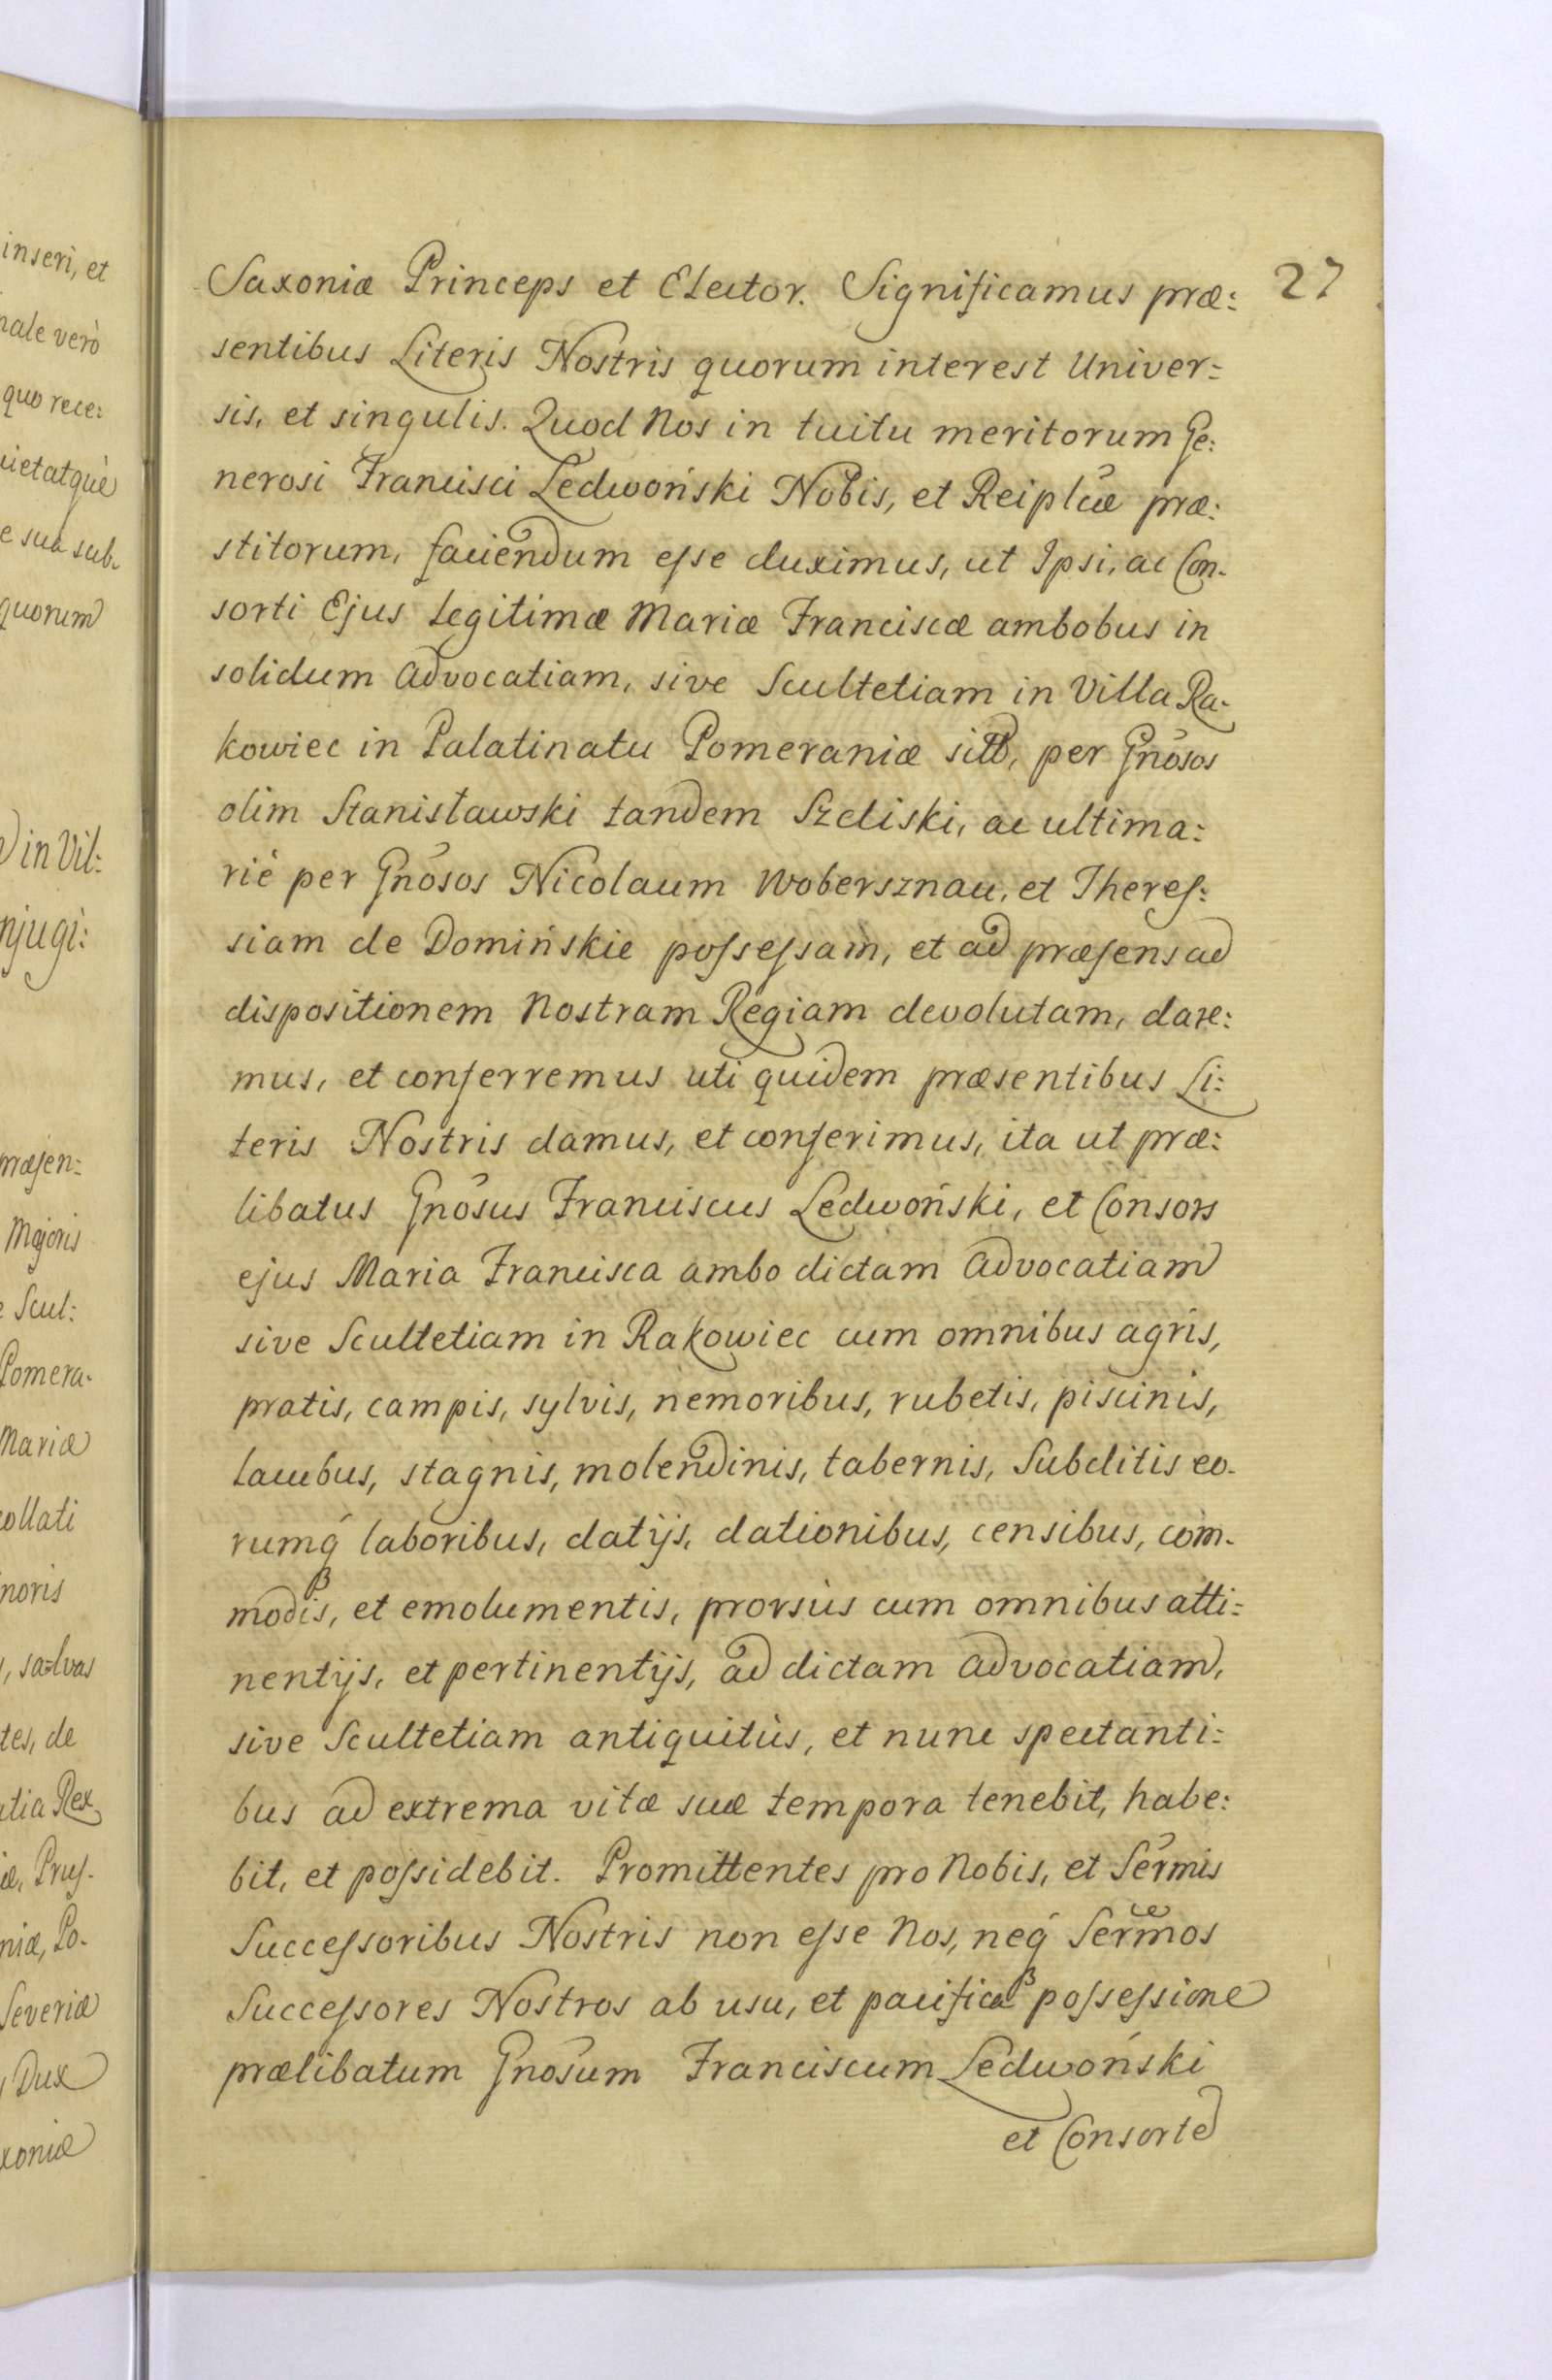 inseri, et
nale verò
quo rece:
uietatquè
e sua sub.
quorum
in Vil:
njugi:
præsen:
Majoris
e Scul:
Pomera-
Mariæ
collati
noris
, salvas
tes, de
atia Rex
æ, Prus-
niæ, Po-
Severiæ
, Dux
xoniæ
27
Saxoniæ Princeps et Elector. Significamus præ:
sentibus Literis Nostris quorum interest Univer=
sis, et singulis. Quod Nos in tuitu meritorum Ge:
nerosi Francisci Ledwoński Nobis, et Reiplcæ præ:
stitorum, faciendum esse duximus, ut Ipsi, ac Con-
sorti Ejus Legitimæ Mariæ Franciscæ ambobus in
solidum Advocatiam, sive Scultetiam in Villa Ra-
kowiec in Palatinatu Pomeraniæ sitt, per Gnõsos
olim Stanisławski tandem Szeliski, ac ultima:
riè per Gnõsos Nicolaum Wobersznau, et Theres:
siam de Domińskie possessam, et ad præsens ad
dispositionem Nostram Regiam devolutam, dare:
mus, et conferremus uti quidem præsentibus Li:
teris Nostris damus, et conferimus, ita ut præ:
libatus Gnõsus Franciscus Ledwoński, et Consors
ejus Maria Francisca ambo dictam Advocatiam
sive Scultetiam in Rakowiec cum omnibus agris,
pratis, campis, sylvis, nemoribus, rubetis, piscinis,
lacubus, stagnis, molendinis, tabernis, Subditis eo-
rumq́ laboribus, datijs, dationibus, censibus, com-
modis, et emolumentis, prorsùs cum omnibus atti=
nentijs, et pertinentijs, ad dictam Advocatiam,
sive Scultetiam antiquitùs, et nunc spectanti=
bus ad extrema vitæ suæ tempora tenebit, habe:
bit, et possidebit. Promittentes pro Nobis, et Sermis
Successoribus Nostris non esse Nos, neq́ Sermos
Successores Nostros ab usu, et pacifica possessione
prælibatum Gnõsum Franciscum Ledwoński
et Consorte